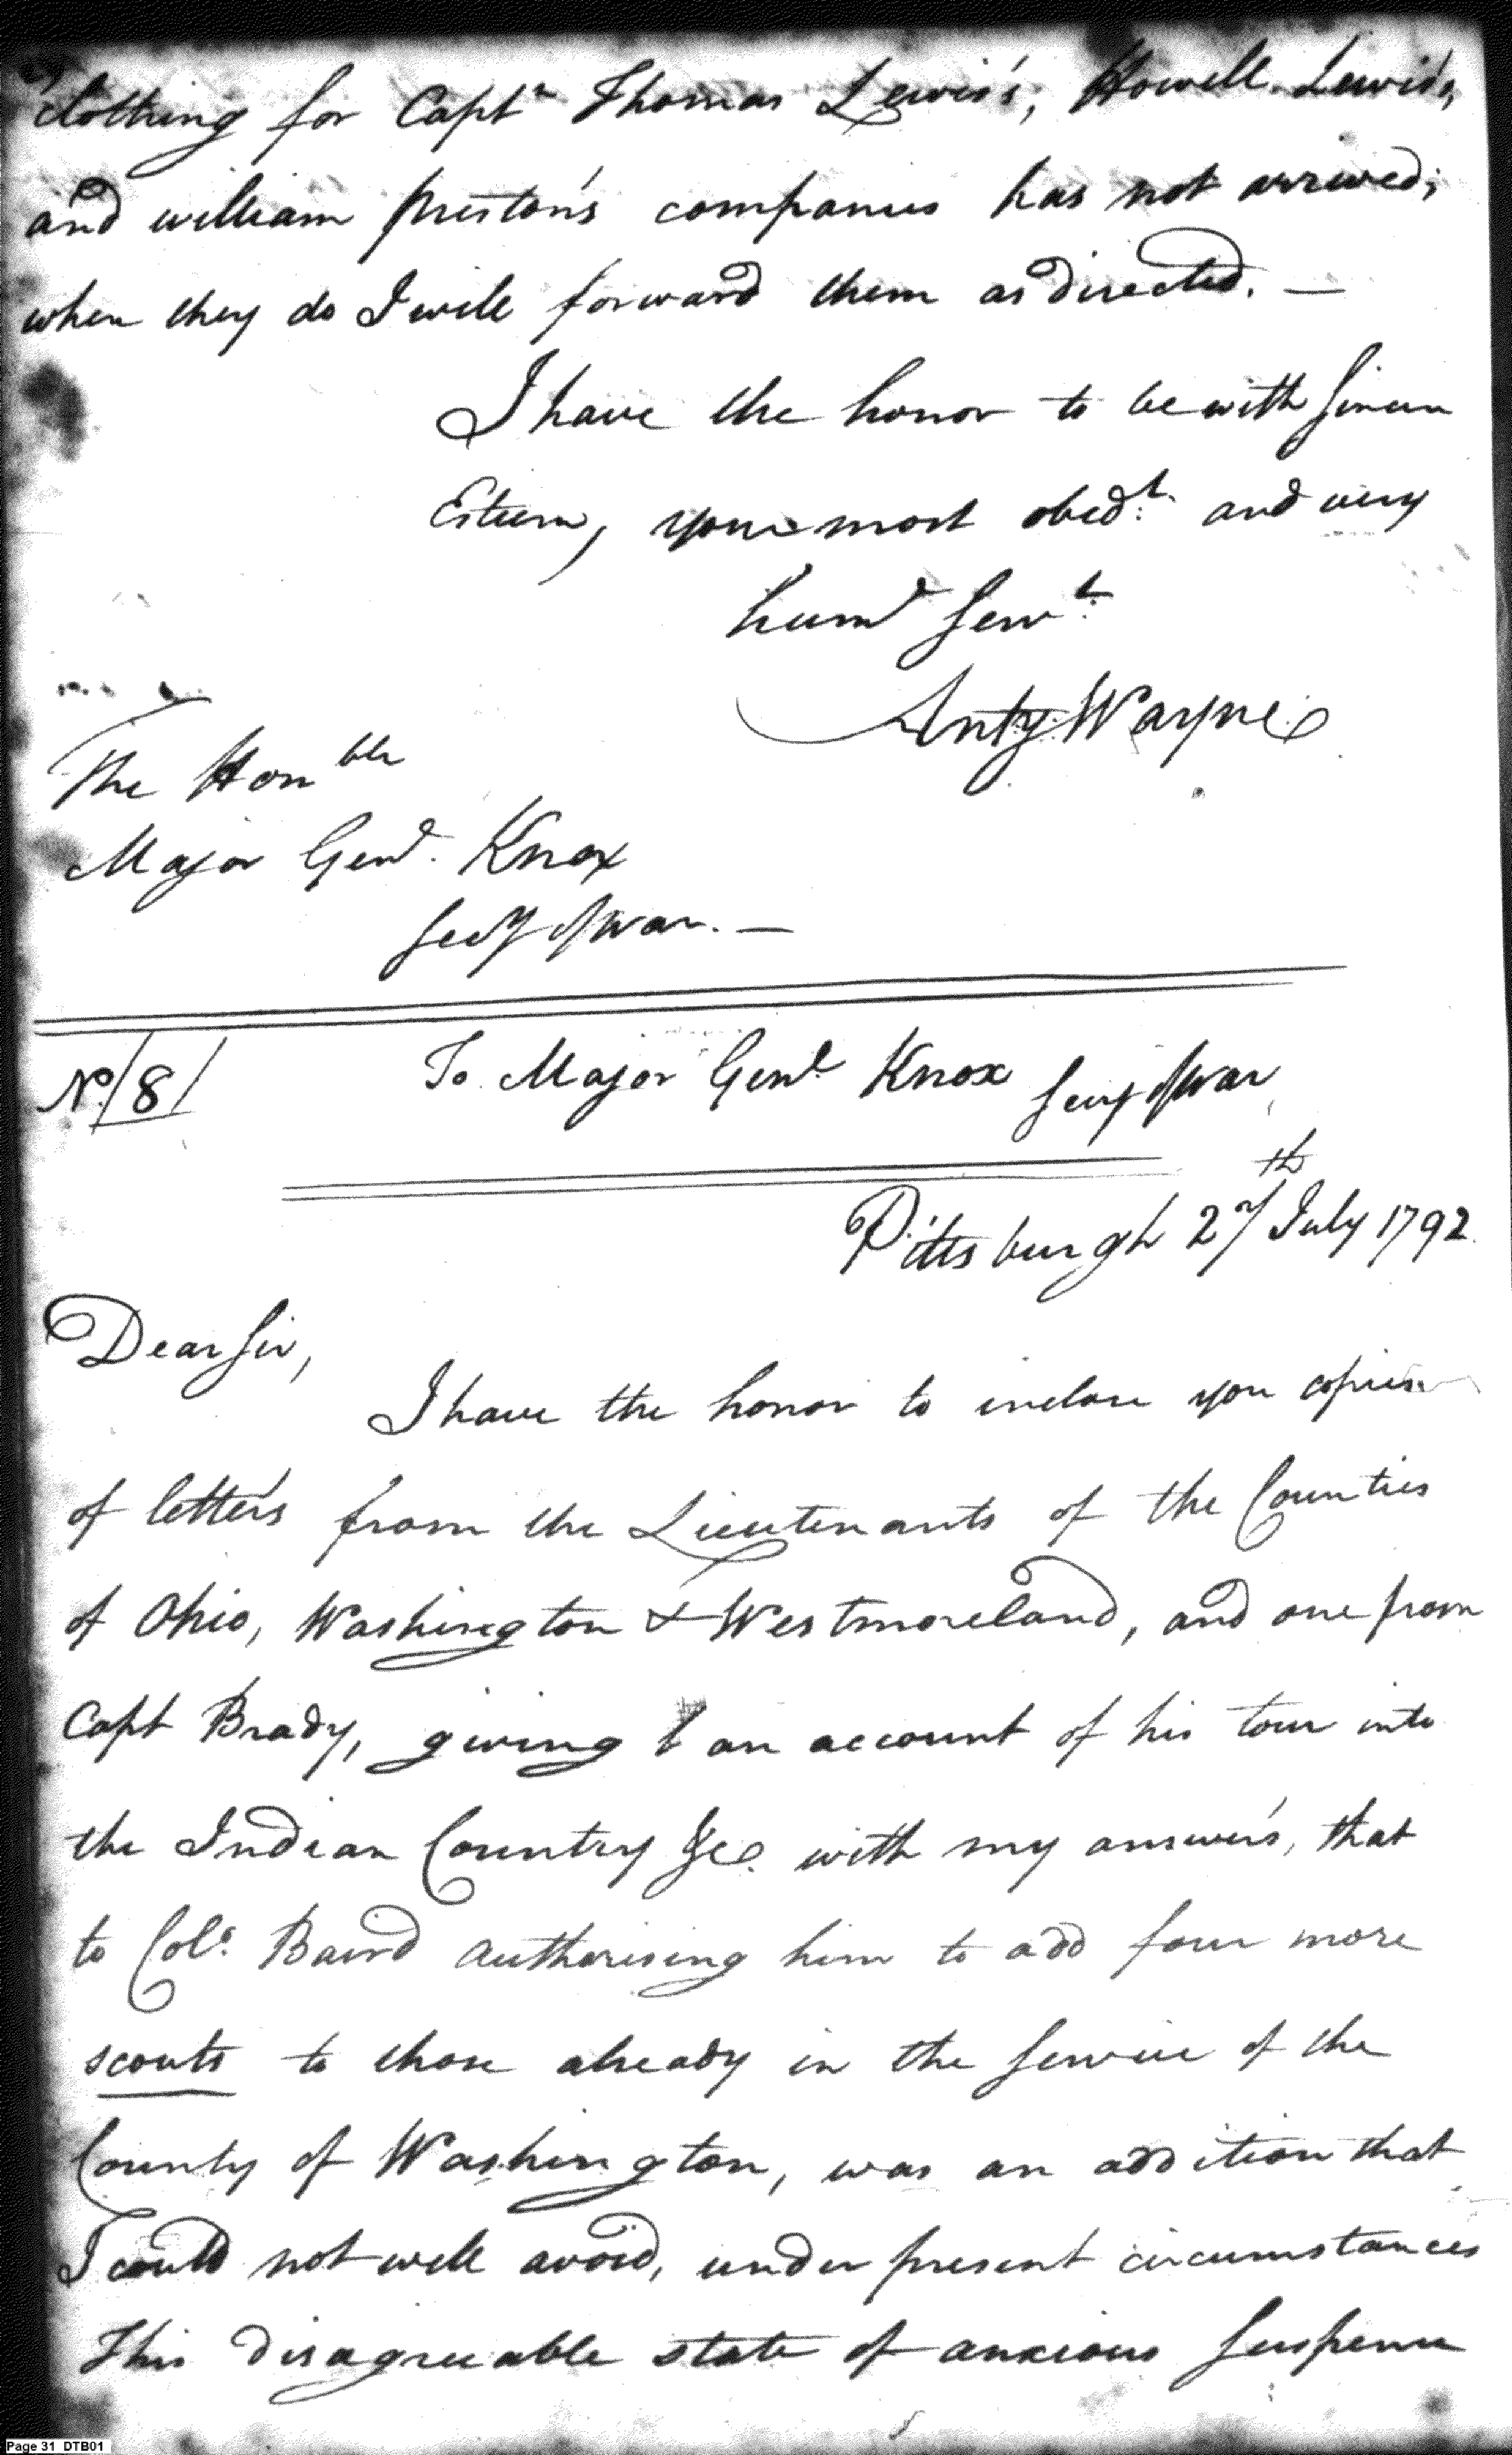 clothing for Capt.n Thomas Lewis's, Howell Lewis's,
and william preston's companies has not arrived;
when they do I will forward them as directed. —
I have the honor to be with sincere
Esteem, your most obed.t and very
hum.l Serv.t
Anty. Wayne
The Hon.ble
Major Gen.l Knox
Secy of war. —
No. 8
To Major Gen.l Knox Secy of War
Pittsburgh 27th July 1792.
Dear Sir,
I have the honor to inclose you copies
of letters from the Lieutenants of the Counties
of Ohio, Washington & Westmoreland, and one from
Capt Brady, giving an account of his tour into
the Indian Country &c. with my answers, that
to Col.o Baird authorising him to add four more
scouts to those already in the service of the
County of Washington, was an addition that
I could not well avoid, under present circumstances
This disagreeable state of anxious suspense
Page 31 DTB01